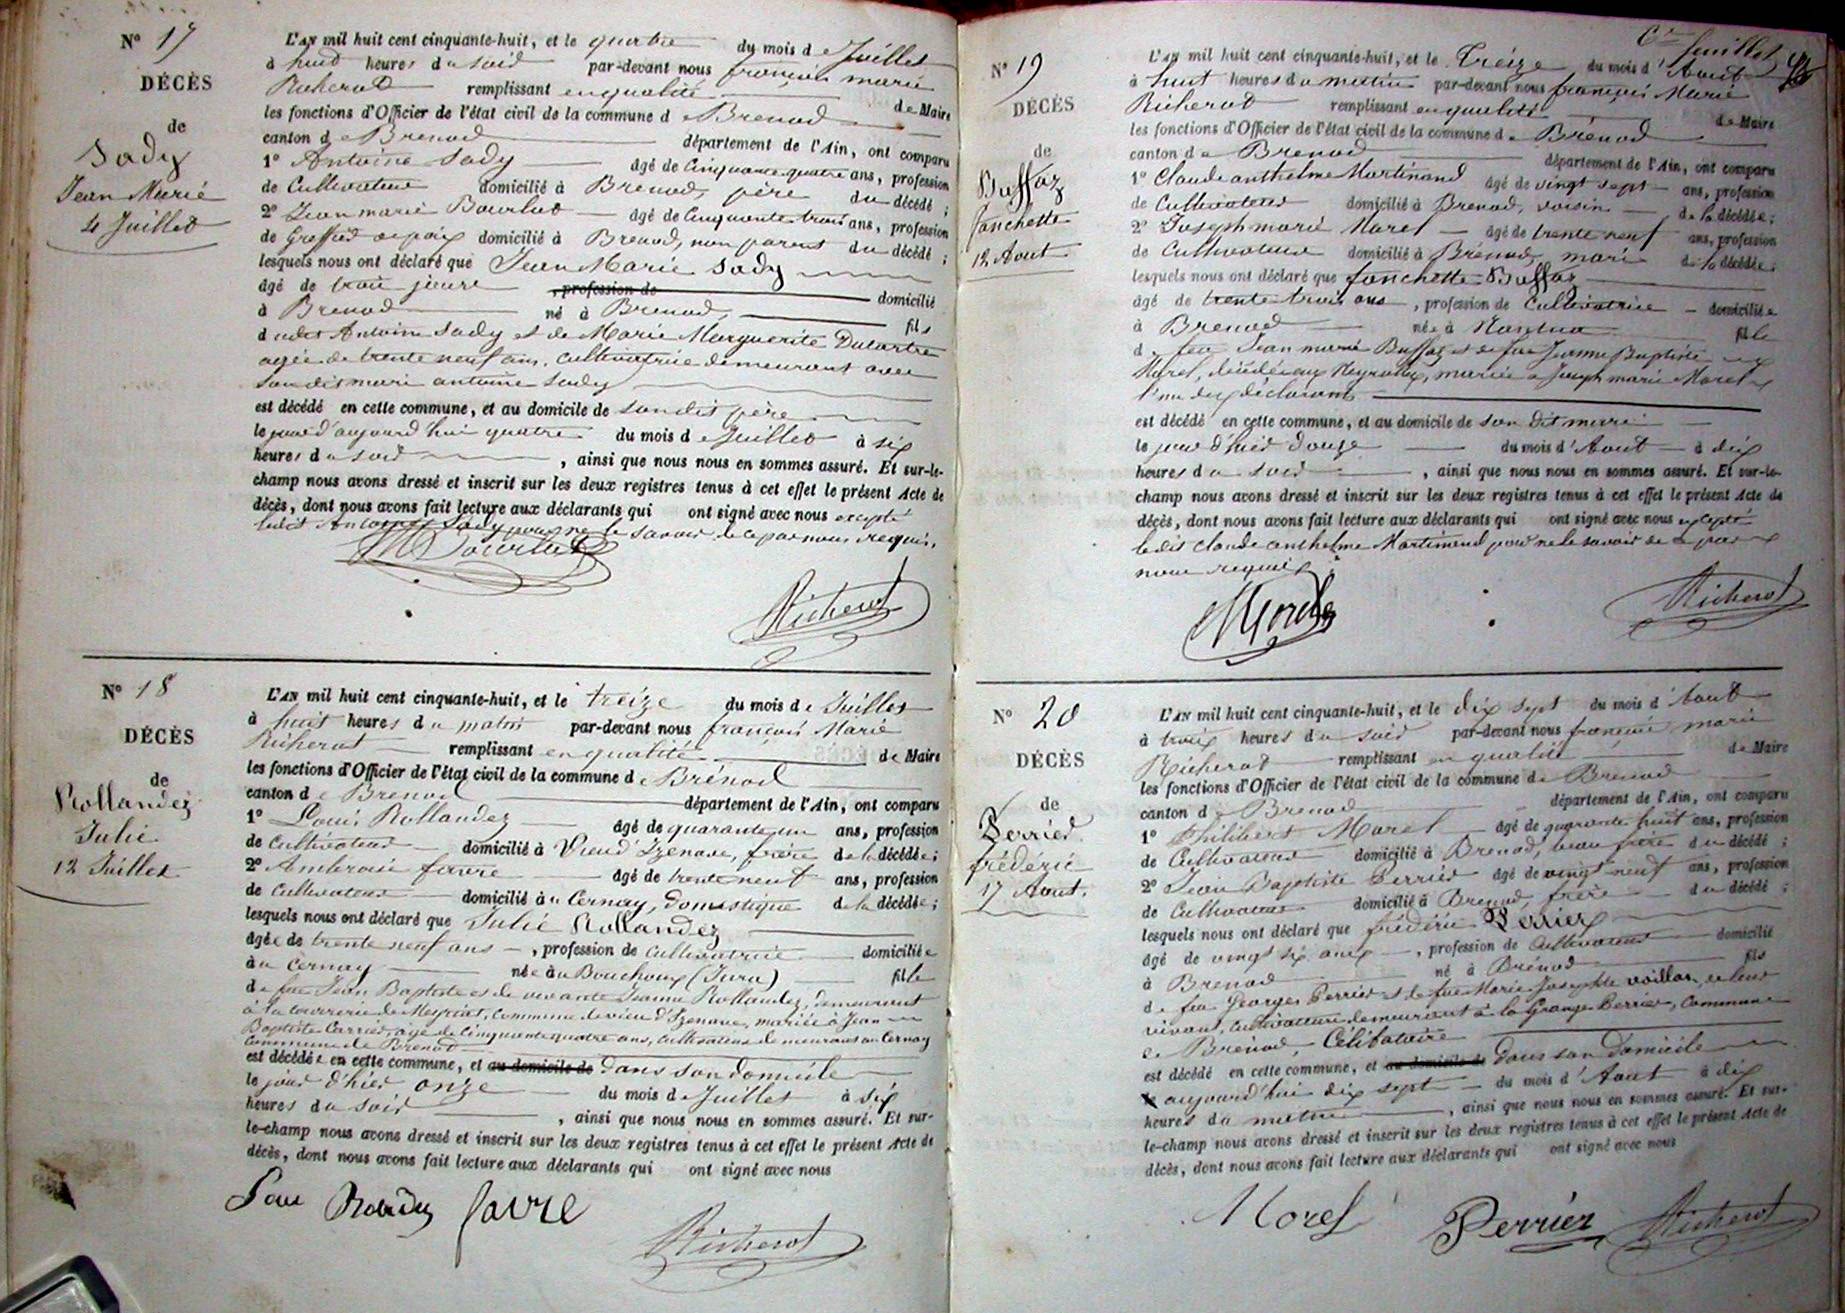 N° 17
DÉCÈS
de
Sady
Jean Marie
4 Juillet
L'AN mil huit cent cinquante-huit, et le quatre du mois de Juillet
à huit heures du soir par-devant nous françois marie
Richerot remplissant en qualité de Maire
les fonctions d'Officier de l'état civil de la commune de Brenod
canton de Brenod département de l'Ain, ont comparu
1° Antoine Sady âgé de Cinquante quatre ans, profession
de Cultivateur domicilié à Brenod, père du décédé ;
2° Jean marie Bourlet âgé de Cinquante trois ans, profession
de Greffier de paix domicilié à Brenod, non parent du décédé ;
lesquels nous ont déclaré que Jean Marie Sady
âgé de trois jours , profession de domicilié
à Brenod né à Brenod, fils
dudit Antoine Sady et de Marie Marguerite Dutartre
agée de trente neuf ans, cultivatrice demeurant avec
son dit mari antoine Sady
est décédé en cette commune, et au domicile de son dit père
le jour d'aujourd'hui quatre du mois de Juillet à six
heures du soir , ainsi que nous nous en sommes assuré. Et sur-le-
champ nous avons dressé et inscrit sur les deux registres tenus à cet effet le présent Acte de
décès, dont nous avons fait lecture aux déclarants qui ont signé avec nous excepté
ledit Antoine Sady pour ne le savoir de ce par nous requis.
Bourlet
Richerot
N° 18
DÉCÈS
de
Rollandez
Julie
12 Juillet
L'AN mil huit cent cinquante-huit, et le treize du mois de Juillet
à huit heures du matin par-devant nous françois Marie
Richerot remplissant en qualité de Maire
les fonctions d'Officier de l'état civil de la commune de Brénod
canton de Brenod département de l'Ain, ont comparu
1° Louis Rollandez âgé de quarante un ans, profession
de Cultivateur domicilié à Vieud' Izenave, frère de la décédée ;
2° Ambroise favre âgé de trente neuf ans, profession
de Cultivateur domicilié à u Cernay, domestique de la décédée ;
lesquels nous ont déclaré que Julie Rollandez
âgée de trente neuf ans , profession de Cultivatrice domiciliée
à u Cernay née à u Bouchoux (Jura) fille
de feu Jean Baptiste et de vivante Jeanne Rollandez, demeurant
à la couverie de Meyriat, commune de vieu d'Izenave, mariée à Jean
Baptiste Carrier, agé de Cinquante quatre ans, Cultivateur demeurant au Cernay
commune de Brenod
est décédée en cette commune, et au domicile de dans son domicile
le jour d'hier onze du mois de Juillet à six
heures du soir , ainsi que nous nous en sommes assuré. Et sur-
le-champ nous avons dressé et inscrit sur les deux registres tenus à cet effet le présent Acte de
décès, dont nous avons fait lecture aux déclarants qui ont signé avec nous
favre
Richerot
6me feuillet
N° 19
DÉCÈS
de
Buffaz
fanchette
12 Aout
L'AN mil huit cent cinquante-huit, et le Treize du mois d'Aout
à huit heures du matin par-devant nous françois Marie
Richerot remplissant en qualité de Maire
les fonctions d'Officier de l'état civil de la commune de Brénod
canton de Brenod département de l'Ain, ont comparu
1° Claude anthelme Martinand âgé de vingt sept ans, profession
de Cultivateur domicilié à Brenod, voisin de la décédée ;
2° Joseph marie Morel âgé de trente neuf ans, profession
de Cultivateur domicilié à Brénod, mari de la décédée ;
lesquels nous ont déclaré que fanchette Buffaz
âgé de trente trois ans , profession de Cultivatrice domiciliée
à Brenod née à Nantua fille
de feu Jean marie Buffaz et de feue Jeanne Baptiste
Morel, décédée aux Neyrolles, mariée a Joseph marie Morel
l'un des déclarants
est décédé en cette commune, et au domicile de son dit mari
le jour d'hier douze du mois d'Aout à dix
heures du soir , ainsi que nous nous en sommes assuré. Et sur-le-
champ nous avons dressé et inscrit sur les deux registres tenus à cet effet le présent Acte de
décès, dont nous avons fait lecture aux déclarants qui ont signé avec nous excepté
le dit Claude anthelme Martinand pour ne le savoir de ce par
nous requis
Richerot
N° 20
DÉCÈS
de
Perrier
frédéric
17 Aout.
L'AN mil huit cent cinquante-huit, et le dix sept du mois d'Aout
à trois heures du soir par-devant nous françois marie
Richerot remplissant en qualité de Maire
les fonctions d'Officier de l'état civil de la commune de Brenod
canton de Brenod département de l'Ain, ont comparu
1° Philibert Morel âgé de quarante huit ans, profession
de Cultivateur domicilié à Brenod, beau frère du décédé ;
2° Jean Baptiste Perrier âgé de vingt neuf ans, profession
de Cultivateur domicilié à Brenod, frère du décédé ;
lesquels nous ont déclaré que frédéric Perrier
âgé de vingt six ans , profession de Cultivateur domicilié
à Brenod né à Brénod fils
de feu Georges Perrier et de feue Marie Josephte voillar, de leur
vivant, Cultivateurs demeurant à la Grange Perrier, Commune
de Brénod, Célibataire
est décédé en cette commune, et au domicile de dans son Domicile
le aujourd'hui dix sept du mois d'Aout à dix
heures du matin , ainsi que nous nous en sommes assuré. Et sur-
le-champ nous avons dressé et inscrit sur les deux registres tenus à cet effet le présent Acte de
décès, dont nous avons fait lecture aux déclarants qui ont signé avec nous
Morel Perrier Richerot